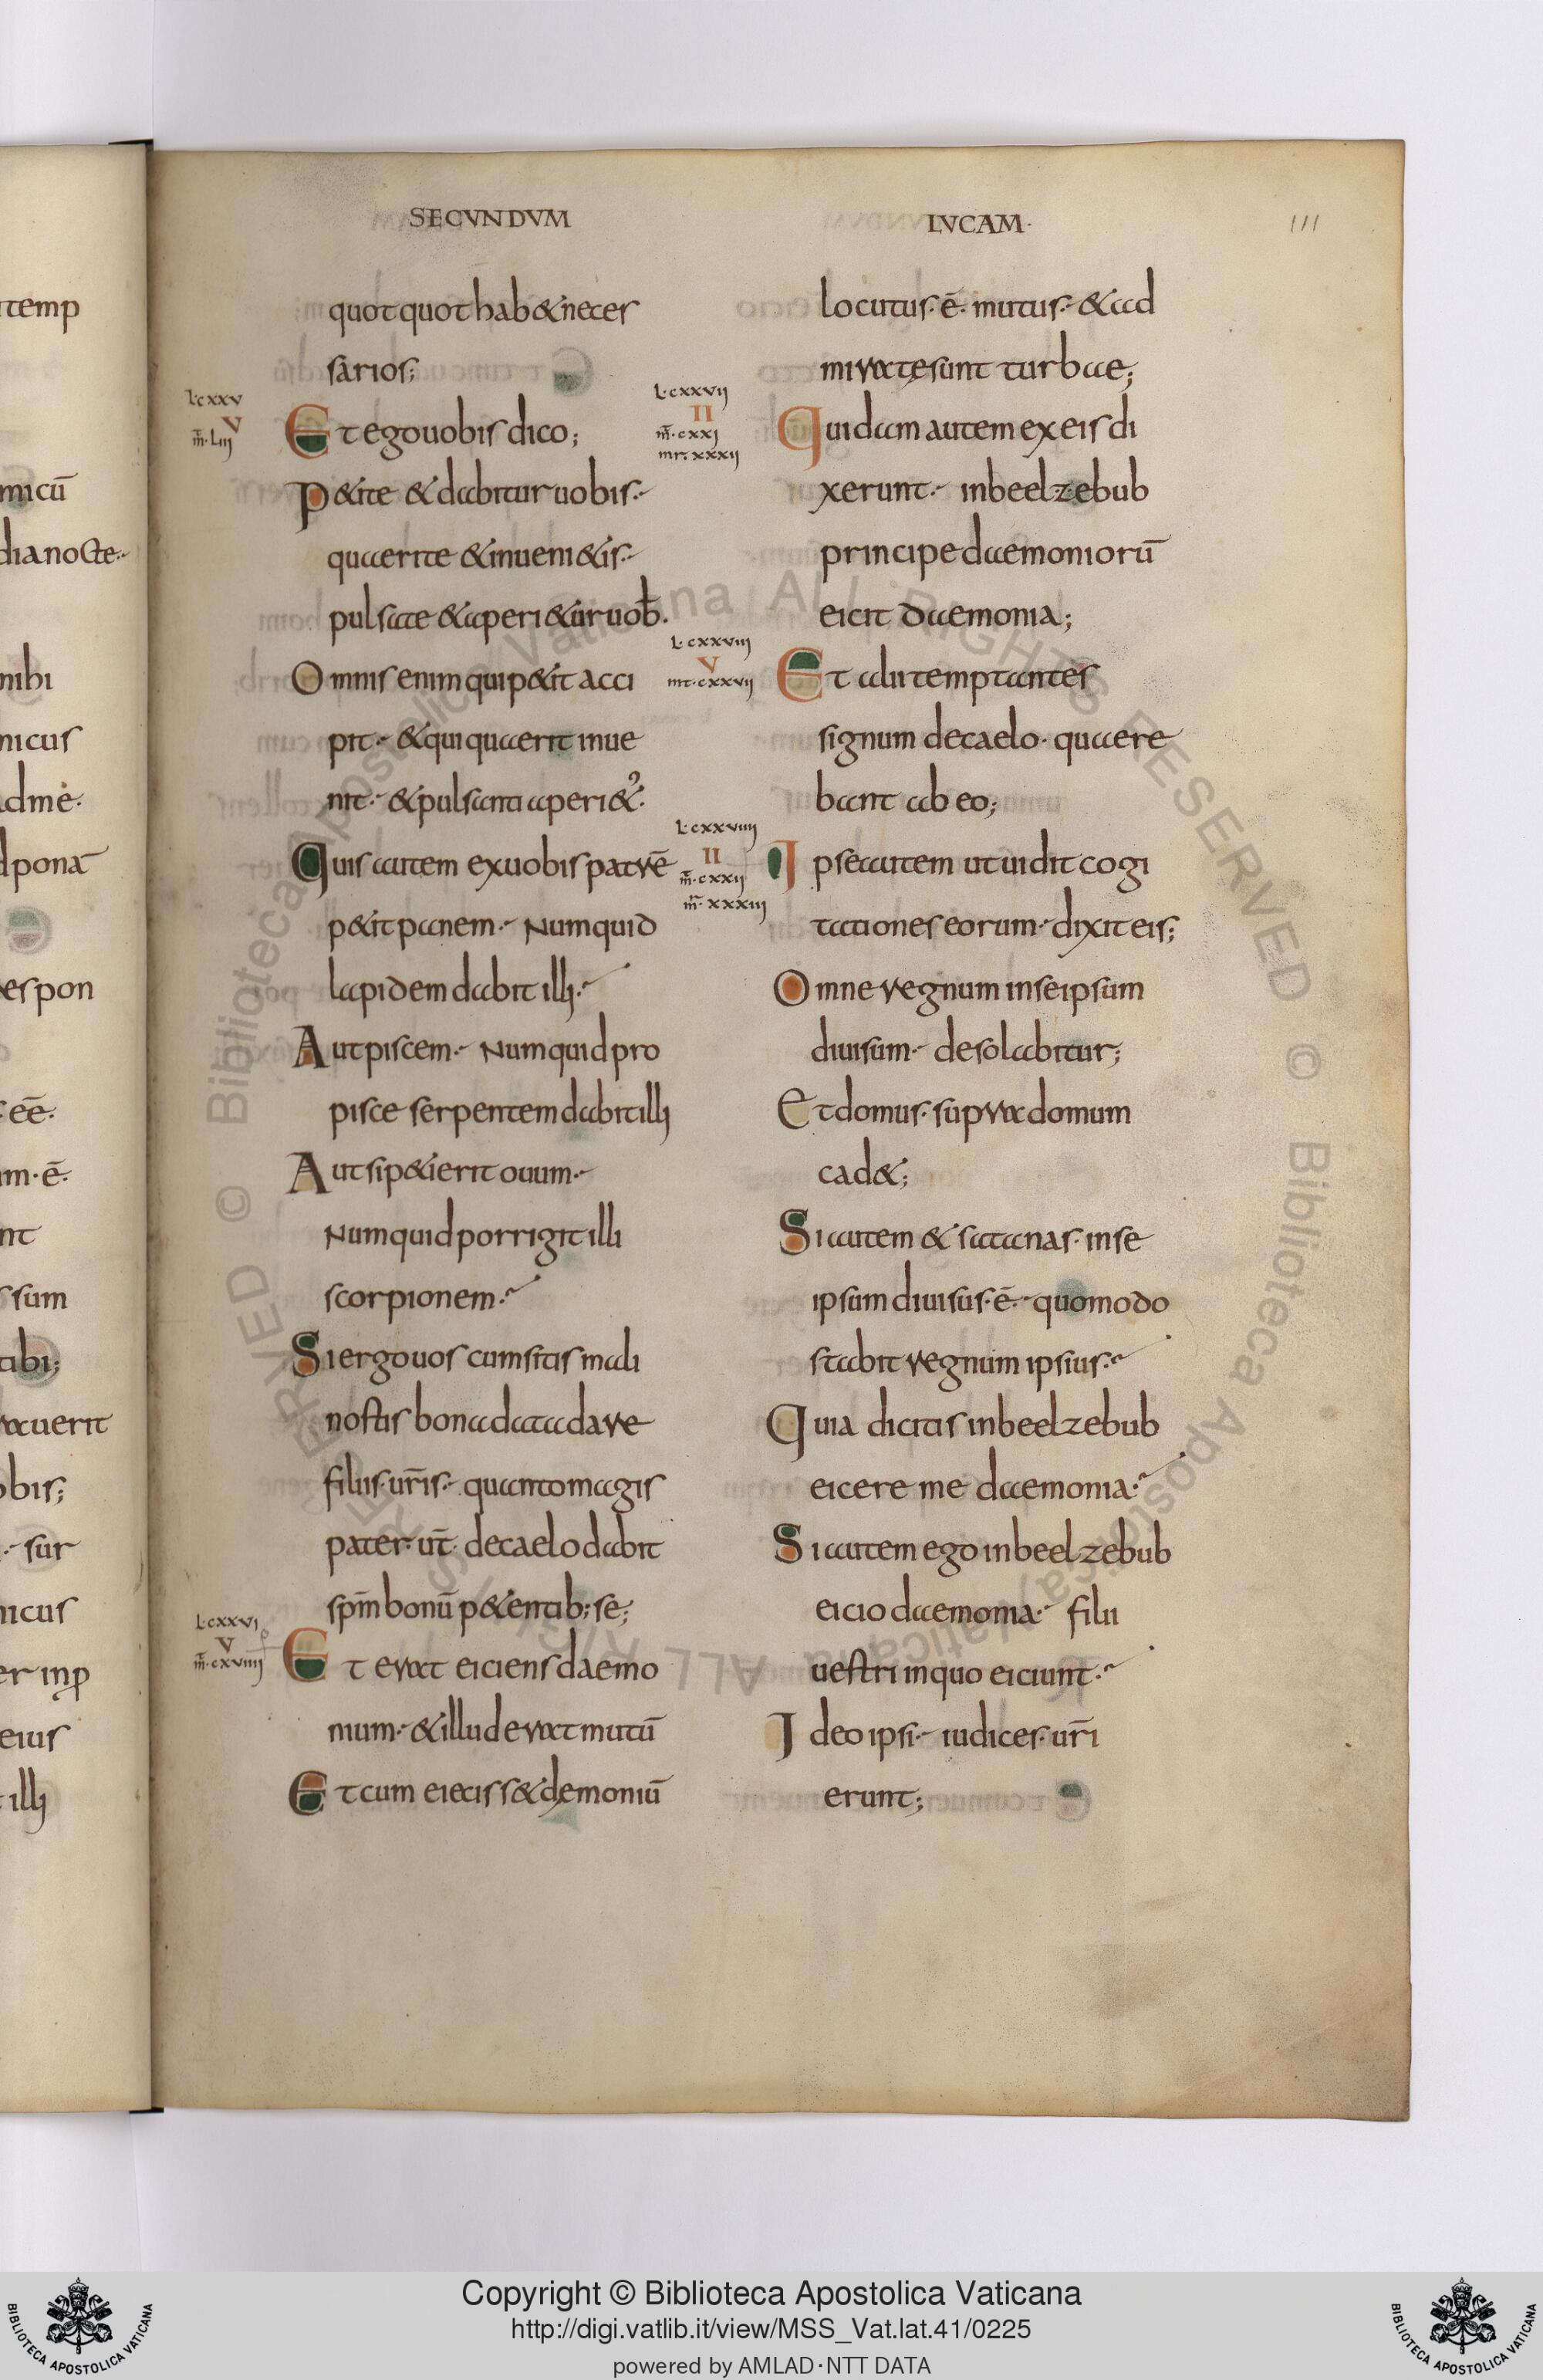 SECVNDVM
LVCAM·
111
quotquot hab&neces
sarios;
L·cxxv
V
m̄·Liii
Et ego uobis dico;
P&ite & dabitur uobis·
quaerite & inueni&is·
pulsate & aperi&ur uob̄·
Omnis enim qui p&it acci
pit· & qui quaerit inue
nit· & pulsanti aperi&ʼ·
Quis autem ex uobis patrē
p&it panem· Numquid
lapidem dabit illi·
Aut piscem· Numquid pro
pisce serpentem dabit illi
Aut si p&ierit ouum·
Numquid porrigit illi
scorpionem·
Si ergo uos cum sitis mali
nostis bona data dare
filiis ur̄is· quanto magis
pater ut̄· de caelo dabit
sp̄m bonū p&entib; se;
L·cxxvi
V
m̄·cxviiii
Et erat eiciens daemo
nium· & illud erat mutū
Et cum eieciss& demoniū
locutus·ē· mutus· & ad
miratę sunt turbae;
L·cxxvii
II
m̄·cxxi
mr·xxxii
Quidam autem ex eis di
xerunt· in beelzebub
principe daemoniorū
eicit daemonia;
L·cxxviii
V
mt·cxxvii
Et alii temptantes
signum de caelo· quaere
bant ab eo;
L·cxxviiii
II
m̄·cxxii
m̄·xxxiii
Ipse autem ut uidit cogi
tationes eorum· dixit eis;
Omne regnum in se ipsum
diuisum· desolabitur;
Et domus· supra domum
cad&;
Si autem & satanas· in se
ipsum diuisus·ē· quomodo
stabit regnum ipsius·
Quia dicitis in beelzebub
eicere me daemonia·
Si autem ego in beelzebub
eicio daemonia· filii
uestri in quo eiciunt·
Ideo ipsi· iudices· ur̄i
erunt;
Copyright © Biblioteca Apostolica Vaticana
http://digi.vatlib.it/view/MSS_Vat.lat.41/0225
powered by AMLAD·NTT DATA
BIBLIOTECA APOSTOLICA VATICANA
BIBLIOTECA APOSTOLICA VATICANA